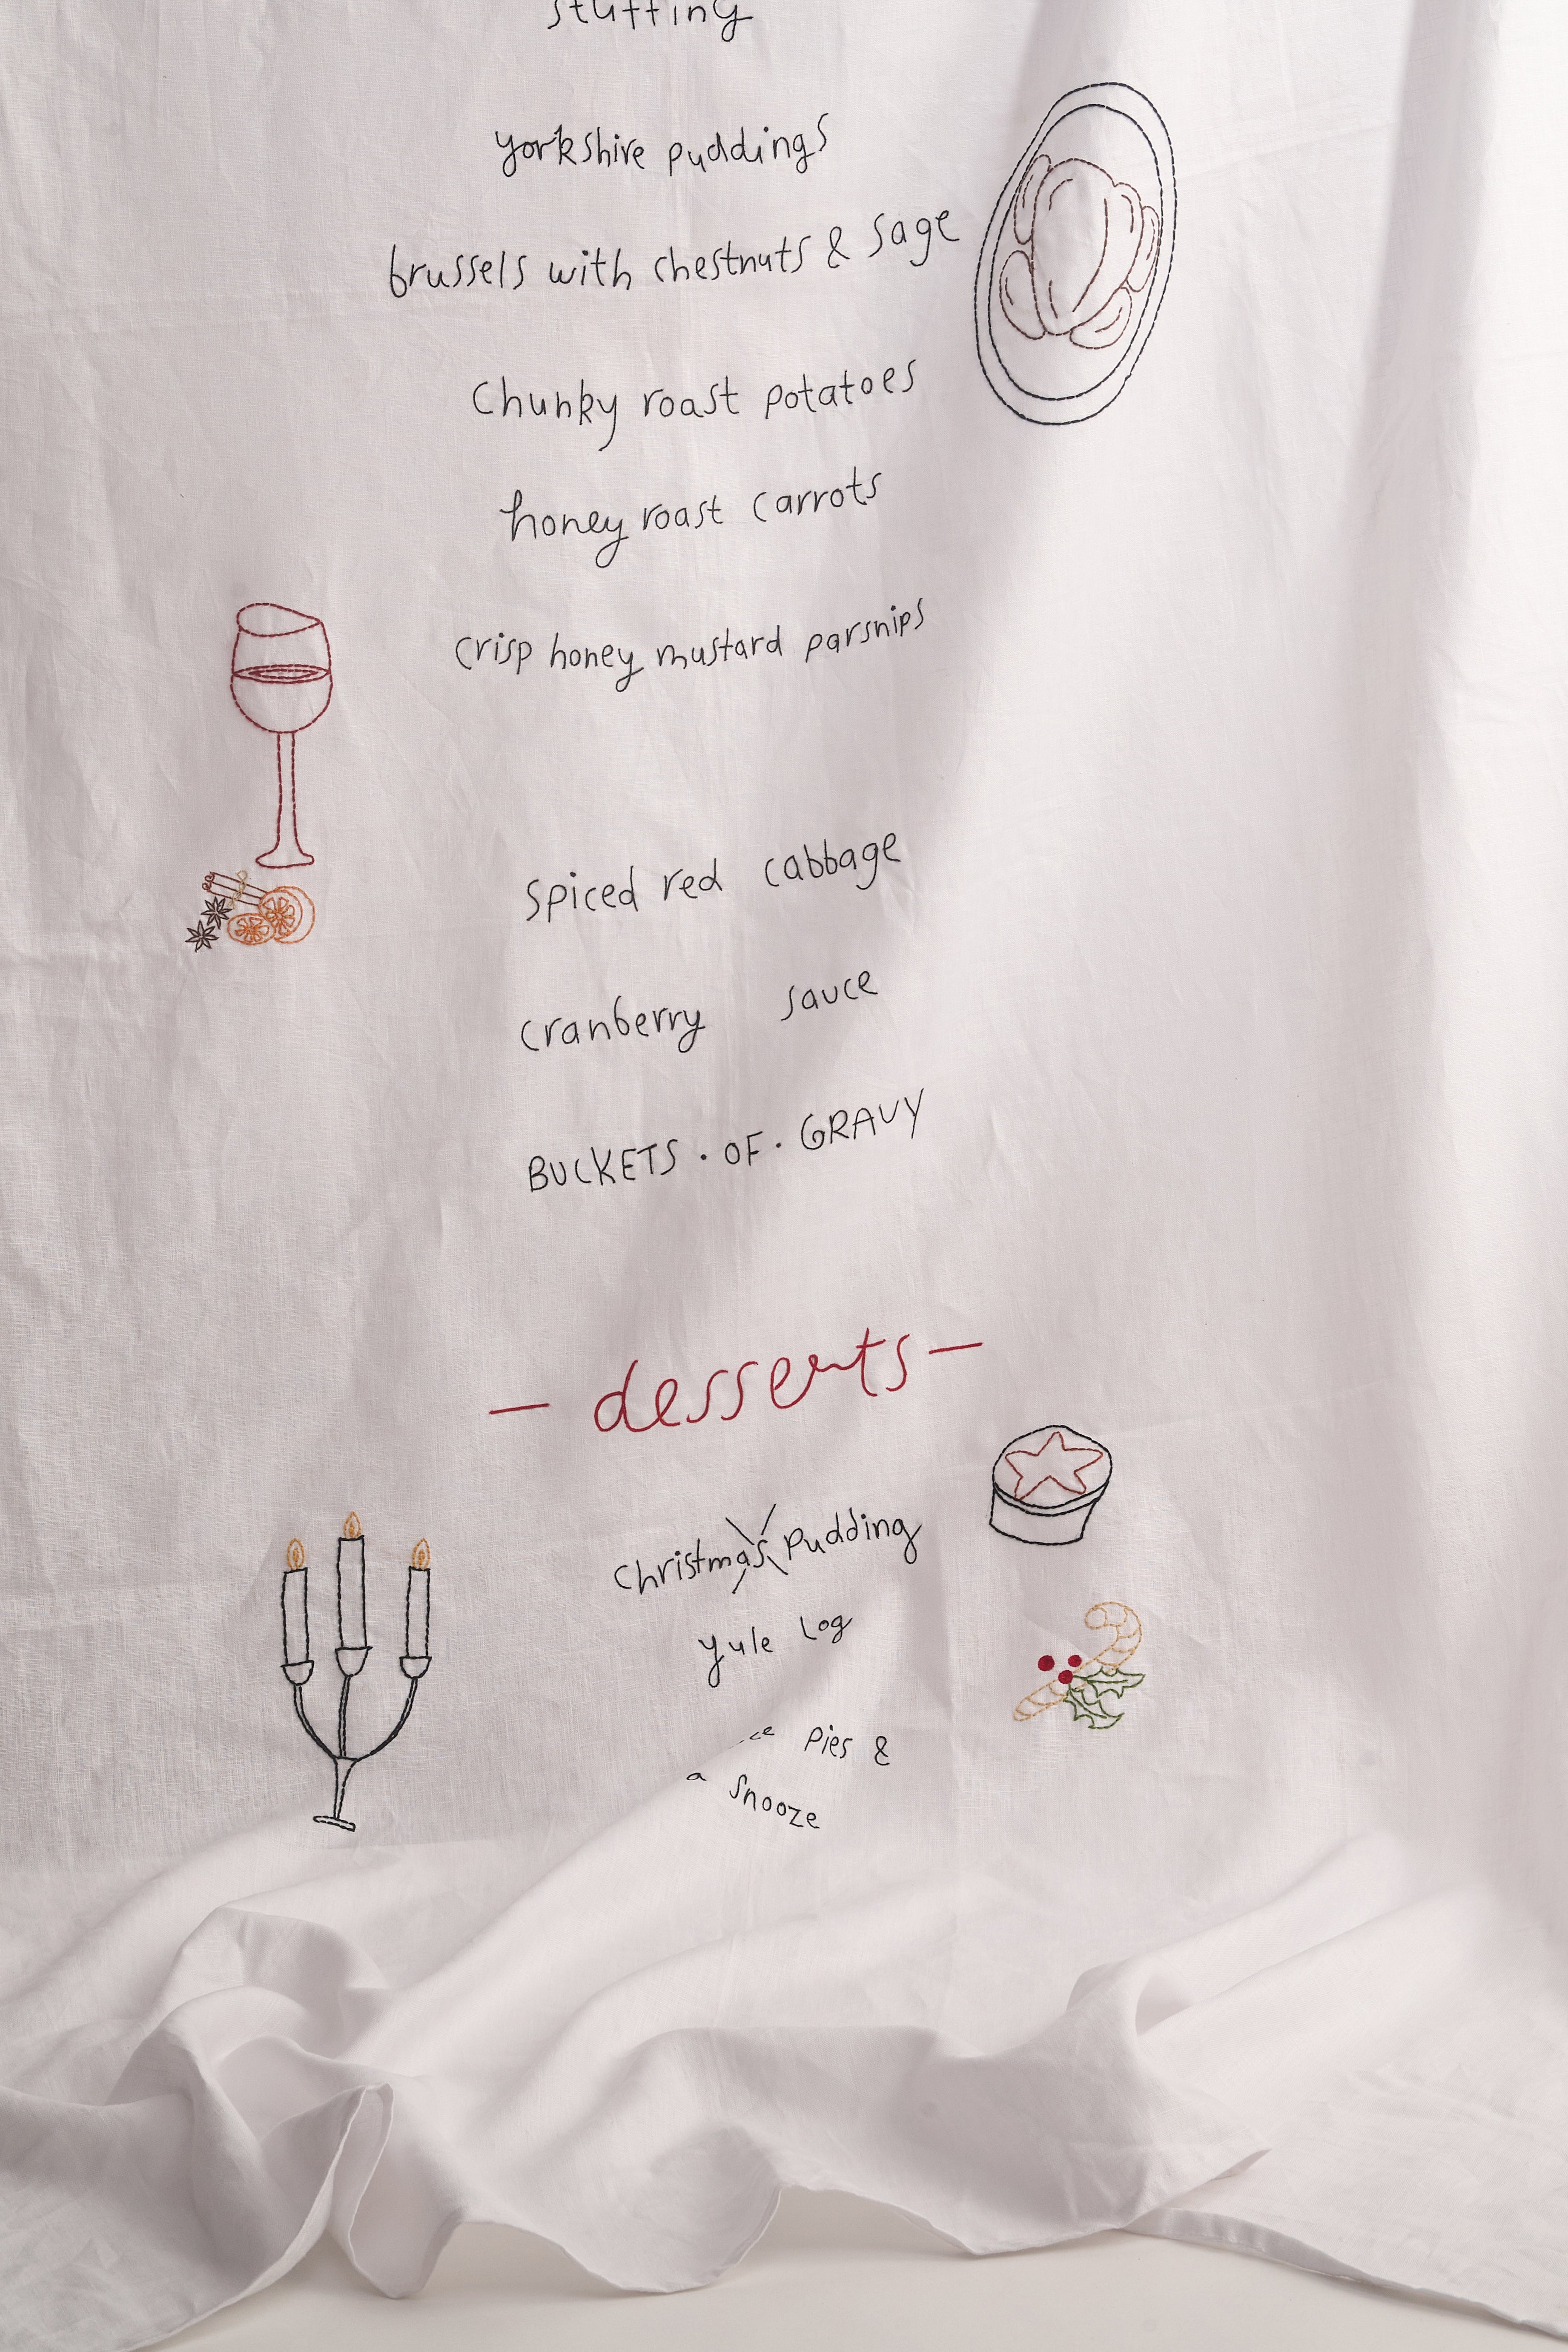 stuffing
yorkshire puddings
brussels with chestnuts & sage
Chunky roast potatoes
honey roast carrots
crisp honey mustard parsnips
Spiced red cabbage
cranberry sauce
BUCKETS · OF · GRAVY
— desserts —
Christmas Pudding
yule log
ce pies &
a snooze